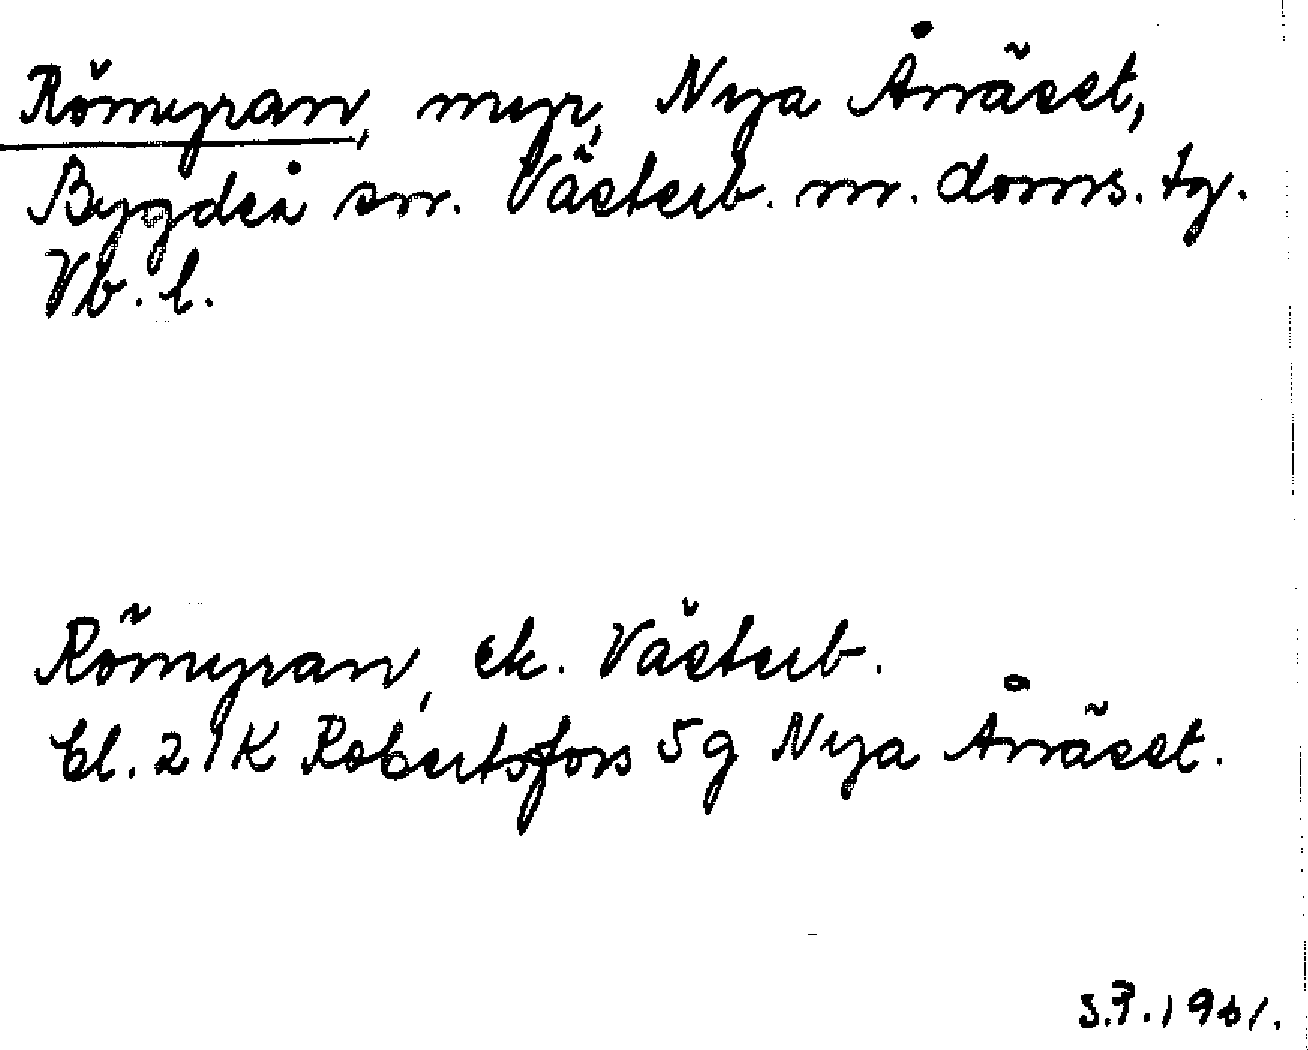 Römyran, myr, Nya Ånäset,
Bygdeå sn. Västerb. n. doms. tg.
Vb. l.
Römyran, ek. Västerb.
Bl. 21K Robertsfors 5g Nya Ånäset.
S.P. 1961.